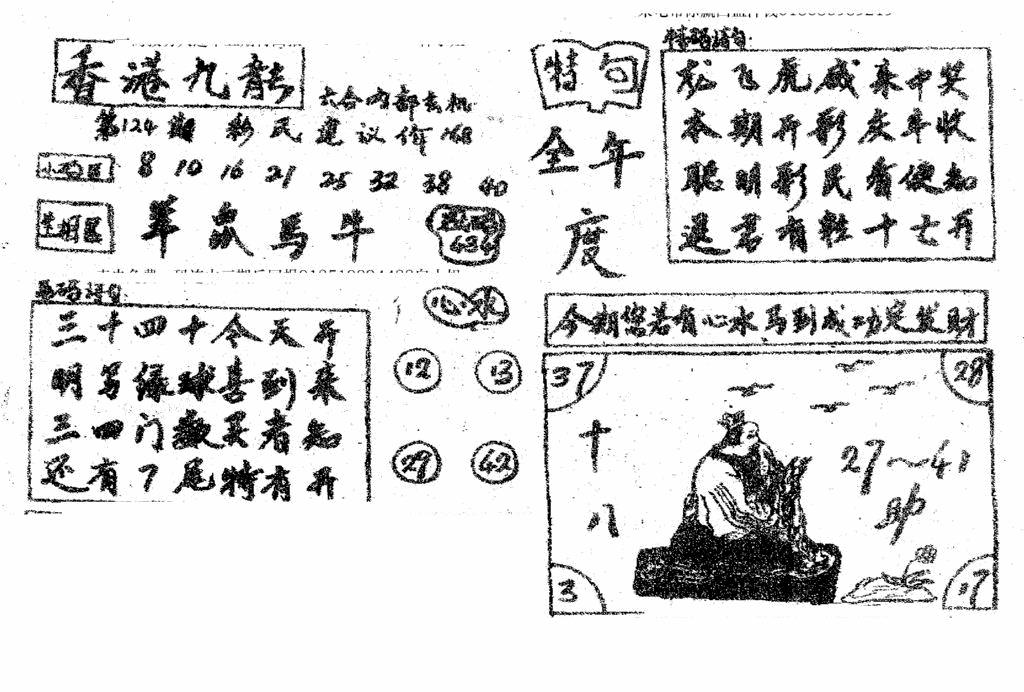 香港九龙
六合内部玄机
第124期 彩民建议价168
小码区 8 10 16 21 25 32 38 40
生肖区 羊鼠马牛
434
特码诗句:
三十四十今天开
明另绿球喜到来
三四门数买者知
还有7尾特有开
心水
12 13
29 42
特句
全年度
特码诗句:
龙飞虎威来中奖
本期开彩庆年收
聪明彩民看便知
送君有粒十七开
今期您若有心水马到成功定发财
37 28
十八
27~41
助
3 17